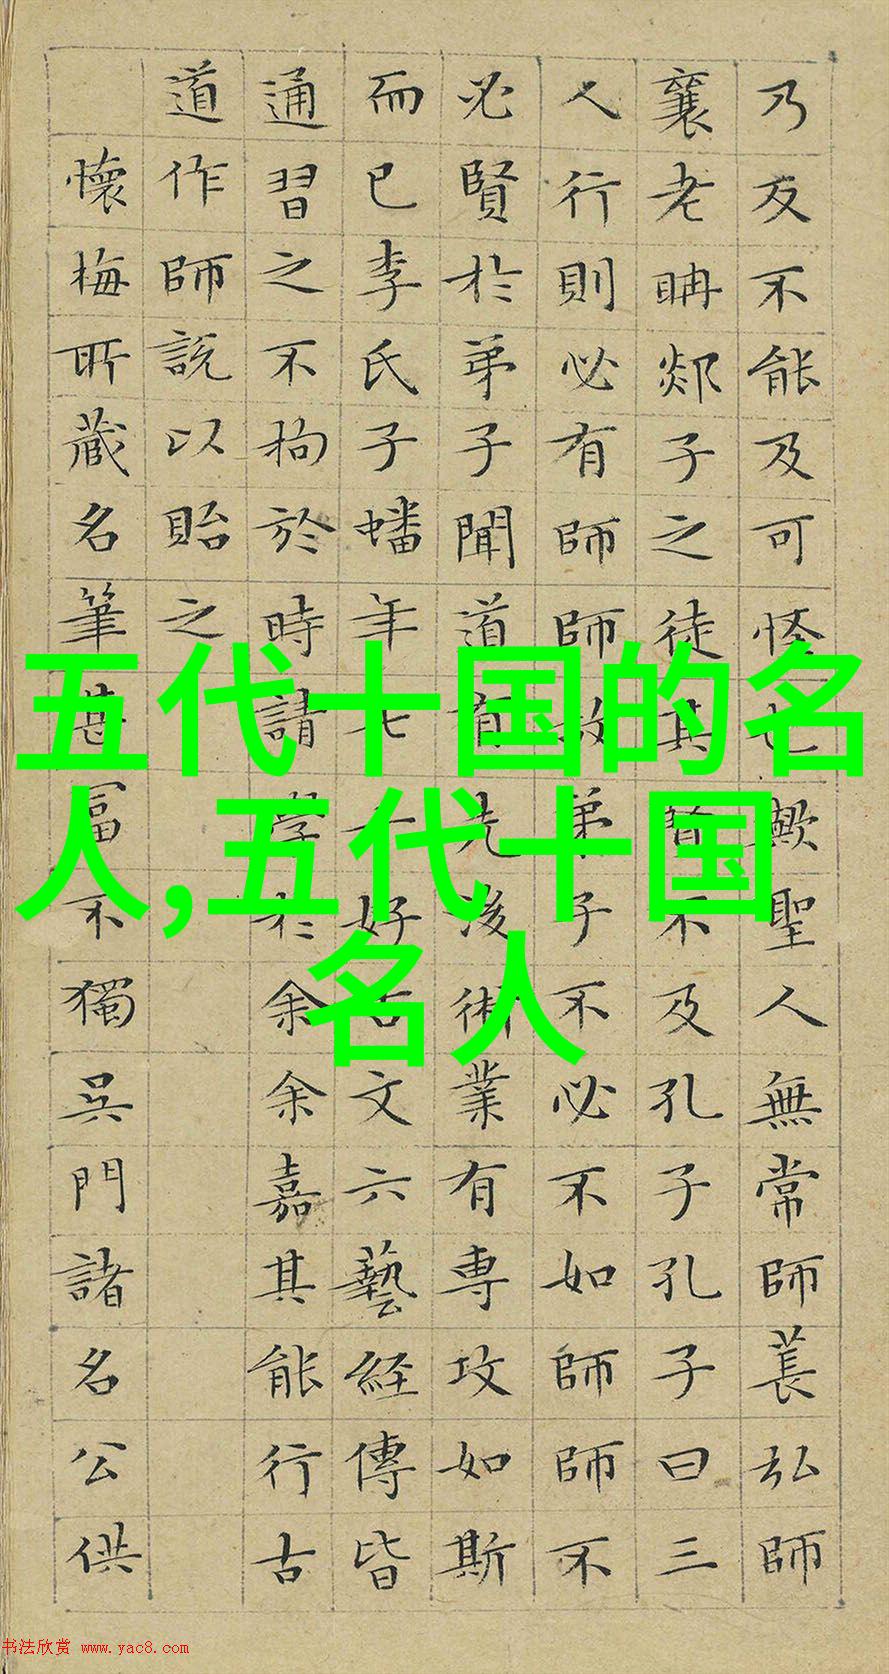 乃反不能及可怪也歟聖人無常師萇弘師
襄老聃郯子之徒其賢不及孔子孔子曰三
人行則必有師師故弟子不必不如師師不
必賢於弟子聞道有先後術業有専攻如斯
而已李氏子蟠年七十好古文六藝経傳皆
通習之不拘於時請學於余余嘉其能行古
道作師説以貽之
懷梅所藏名筆甚富不獨吳門諸名公供
五代十国的名
人,五代十国
名人
书法欣赏 www.yac8.com